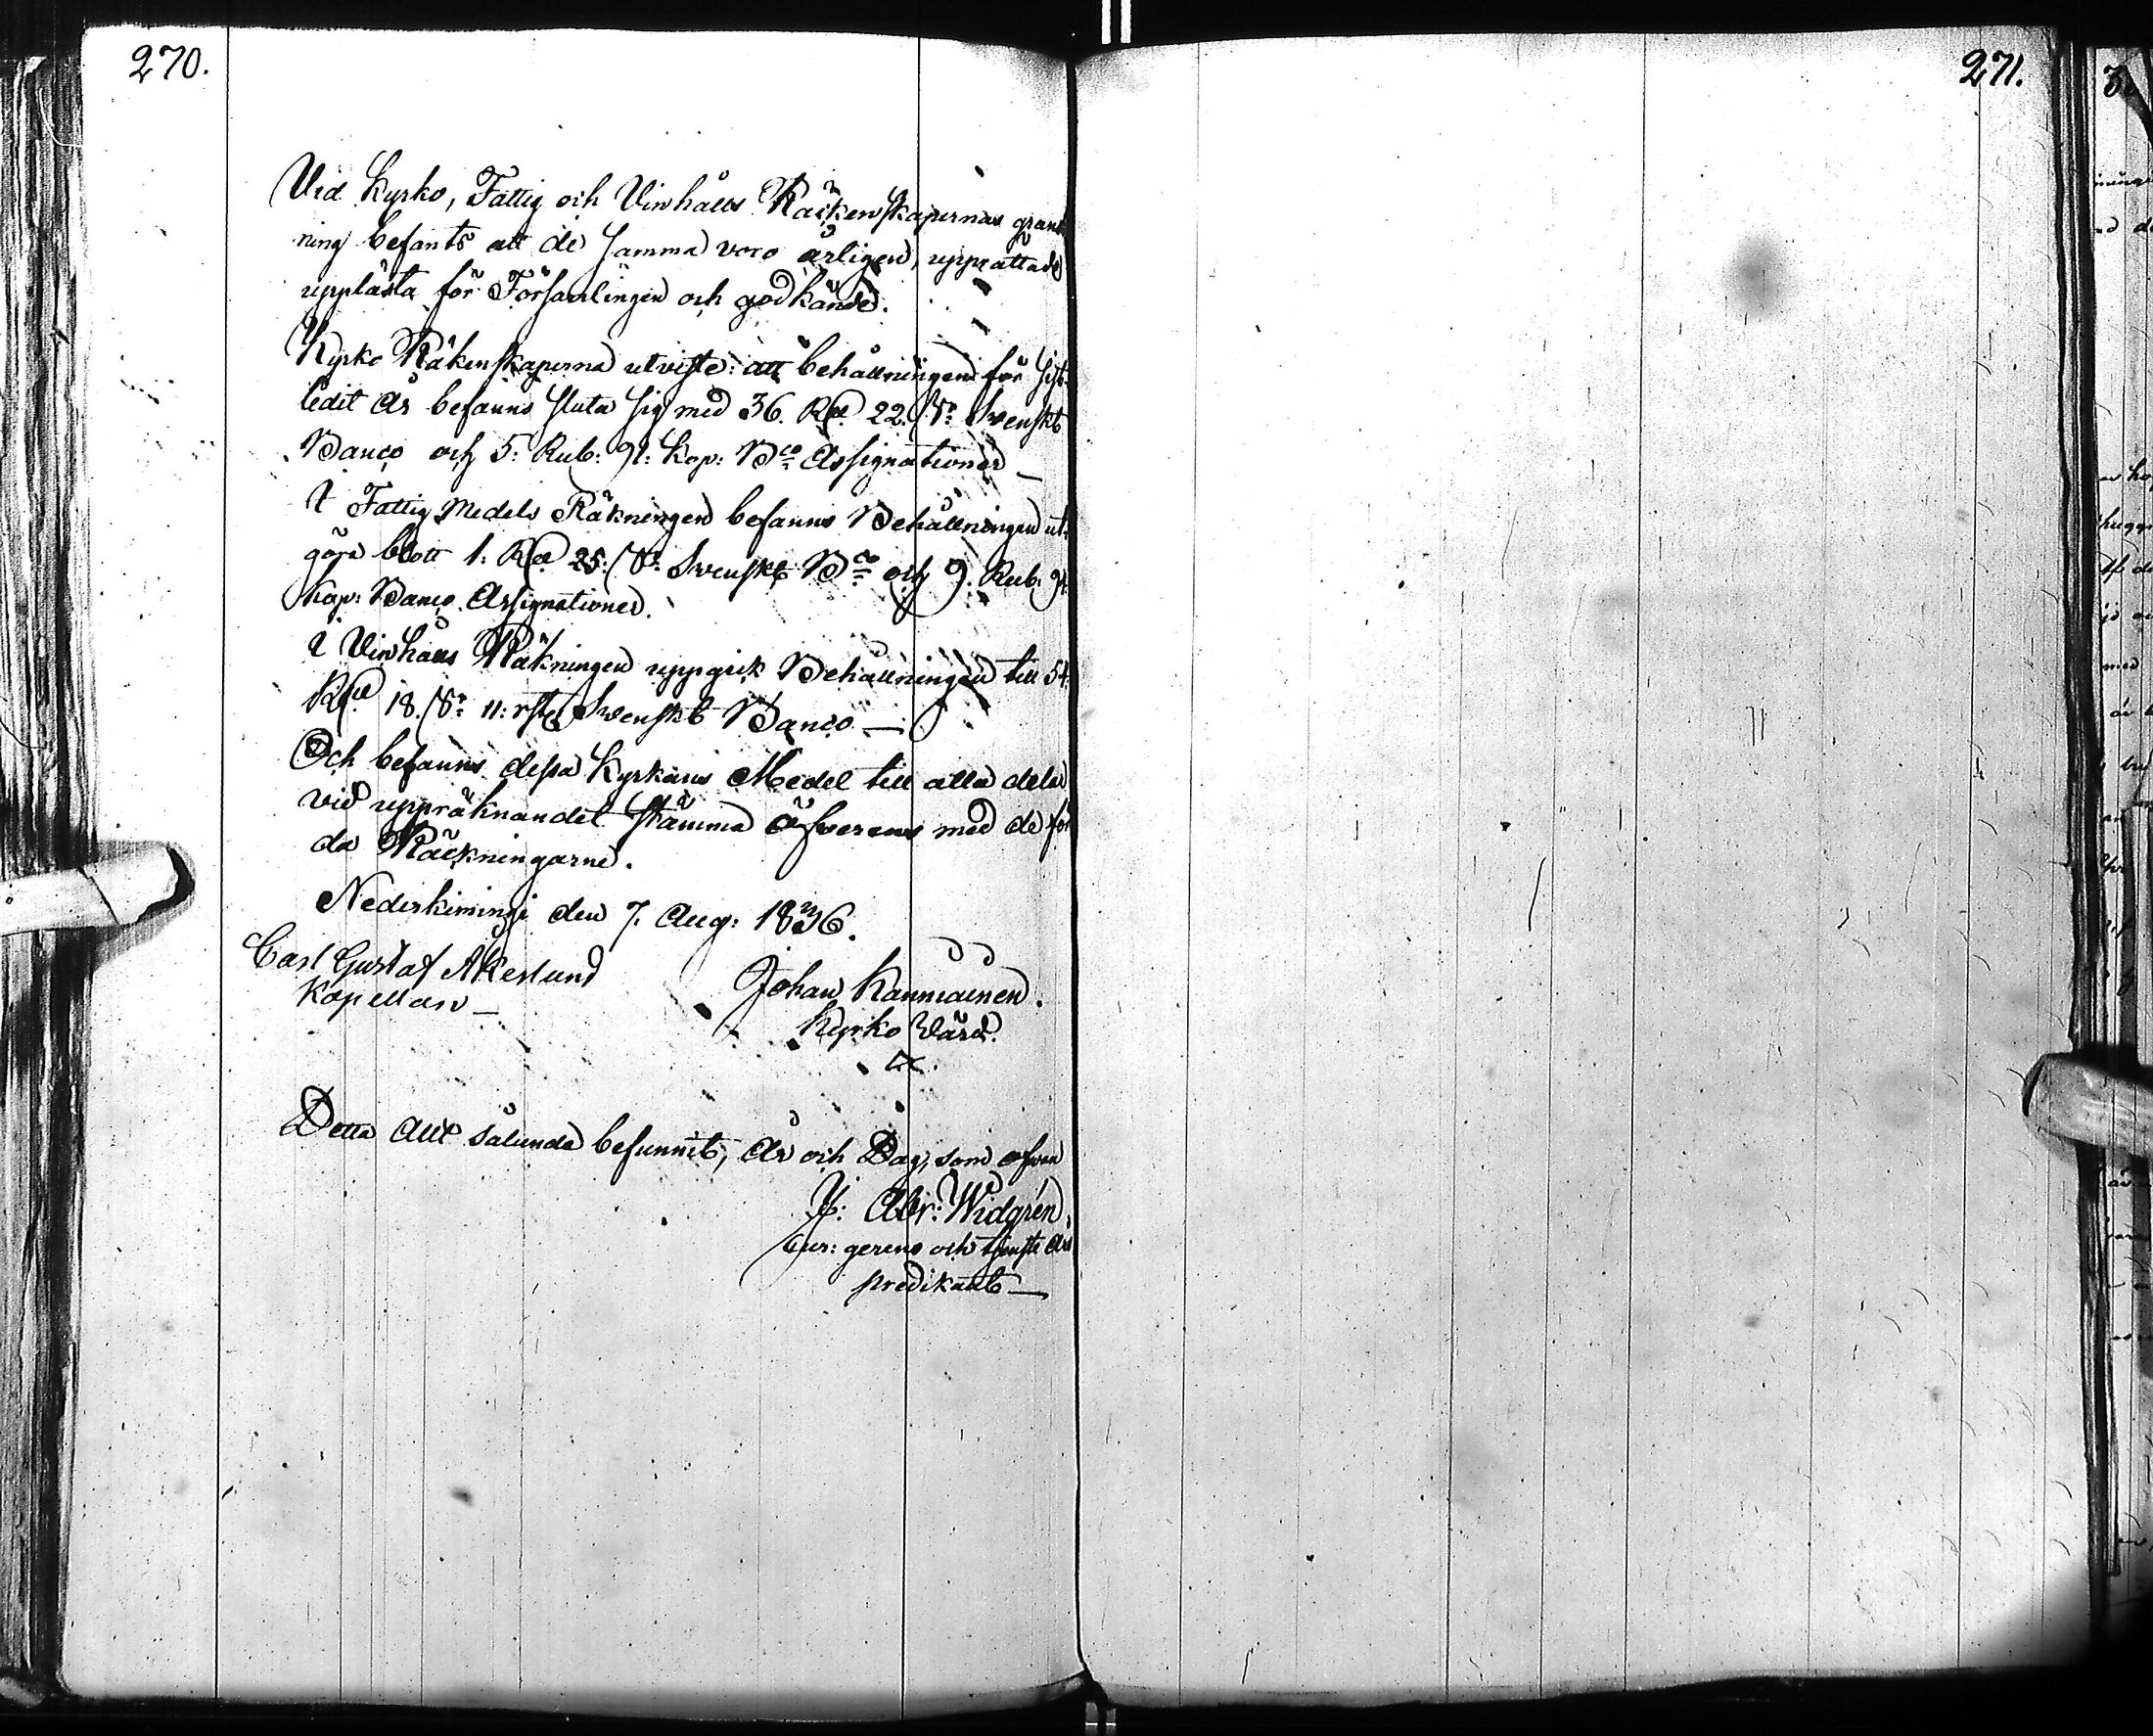 270.
Vid Kyrko, Fattig och Vinhålls Räckenskapernas gransk
ning befants att de samma voro årligen, upprättade
upplästa för Församlingen och godkände.
Kyrko Räkenskaperna utviste: att behållningen för sist-
ledit År befanns sluta sig med 36. Rd 22. s: Svenskt
Banco och 5: Rub: 91: Kop: Bco Assignationer
I Fattig Medels Räkningen befanns Behållningen ut-
göra blott 1: Rd 25: s: Svenskt Bco och 9. Rub: 94
Kop: Banco Assignationer.
I Vinhålls Räkningen uppgick Behållningen till 54:
Rd 18. s: 11: rst Svenskt Banco —
Och befanns dessa Kyrkans Medel till alla delar
vid uppräknandet stämma öfverens med de för
da Räckningarne.
Nederkimingi den 7. Aug: 1836.
Carl Gustaf Åkerlund
Kapellan —
Johan Kanniainen.
Kyrko Värd.
Detta allt sålunda befunnits, År och Dag, som ofvan
Abr: Widgrén.
Cur: gerens och tjenste
predikant —
271.